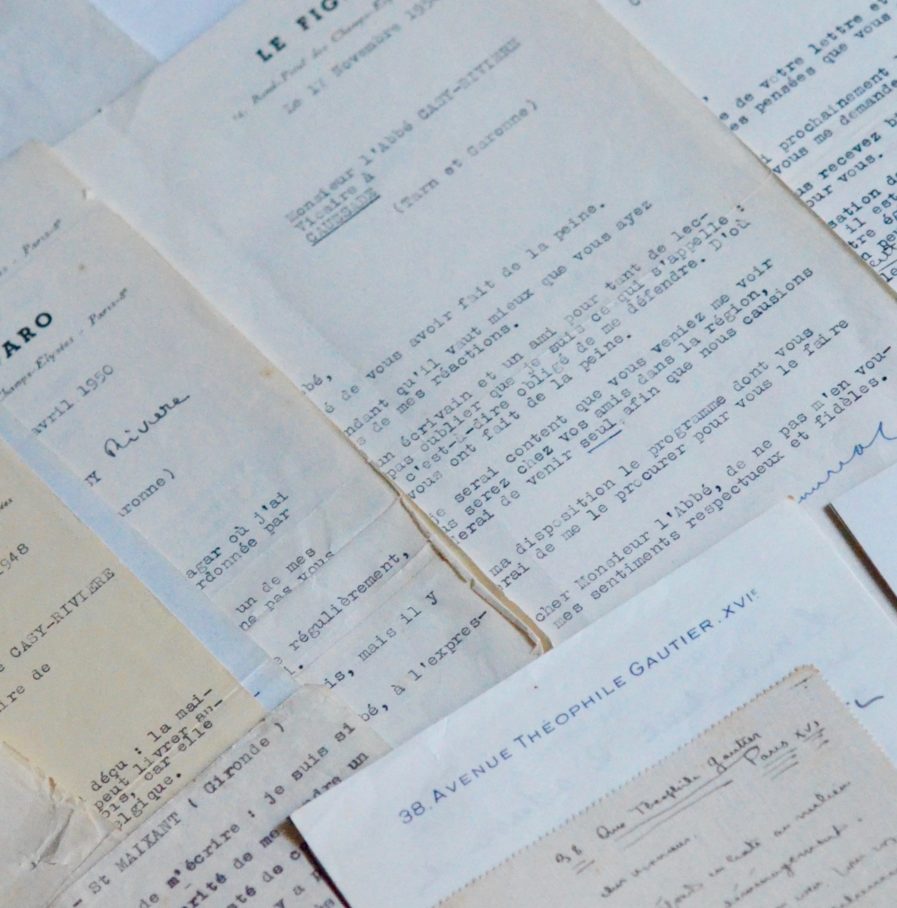 LE FIG
Rond-Point des Champs-Ely
Le 17 Novembre 195
Monsieur l'Abbé CASY-RIVIERE
Vicaire à
CAUSSADE
(Tarn et Garonne)
bé,
é de vous avoir fait de la peine.
ndant qu'il vaut mieux que vous ayez
s de mes réactions.
un écrivain et un ami pour tant de lec-
pas oublier que je suis ce qui s'appelle :
c'est-à-dire obligé de me défendre. D'où
vous ont fait de la peine.
je serai content que vous veniez me voir
us serez chez vos amis dans la région,
erai de venir seul afin que nous causions
ma disposition le programme dont vous
rai de me le procurer pour vous le faire
cher Monsieur l'Abbé, de ne pas m'en vou-
mes sentiments respectueux et fidèles.
e de votre lettre et
es pensées que vous
i prochainement
vous me demande
us recevez b
our vous.
sation de
il est
tre ég
n pe
le
- Paris-8e
ARO
Champs-Elysées - Paris-8e
avril 1950
Y Riviere
aronne)
agar où j'ai
rdonnée par
un de mes
ne pas vous
e régulièrement,
i.
is, mais il y
bé, à l'expres-
1948
e CASY-RIVIERE
ire de
déçu : la mai-
peut livrer au-
ois, car elle
elgique.
- St MAIXANT ( Gironde )
de m'écrire : je suis si
arité de me
dre un
té de c
y a p
38. AVENUE THÉOPHILE GAUTIER. XVIE
38 Rue Théophile Gautier
Paris XVI
cher monsieur,
déménagement.